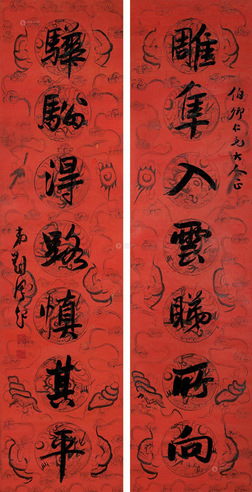 伯卿仁兄大人正
雕隼入雲睇所向
驊騮得路慎其平